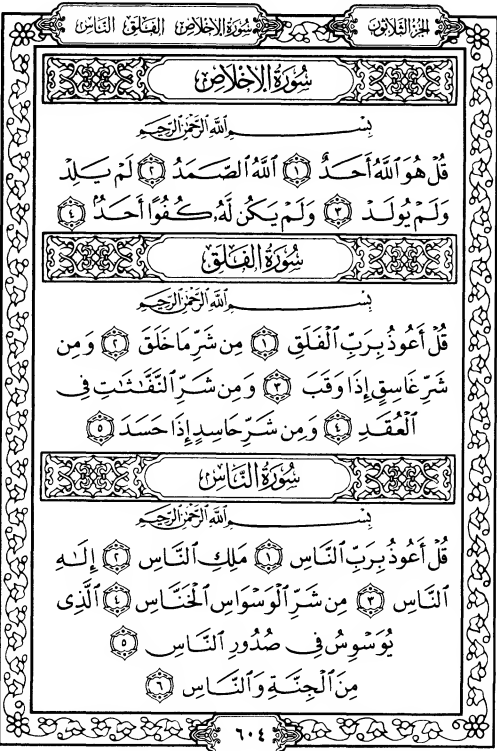 الجزء الثلاثون
سورة الإخلاص الفلق الناس
سُورَةُ الإِخْلَاصِ
بِسْمِ اللَّهِ الرَّحْمَٰنِ الرَّحِيمِ
قُلْ هُوَ اللَّهُ أَحَدٌ ١ اللَّهُ الصَّمَدُ ٢ لَمْ يَلِدْ
وَلَمْ يُولَدْ ٣ وَلَمْ يَكُن لَّهُۥ كُفُوًا أَحَدٌۢ ٤
سُورَةُ الْفَلَقِ
بِسْمِ اللَّهِ الرَّحْمَٰنِ الرَّحِيمِ
قُلْ أَعُوذُ بِرَبِّ الْفَلَقِ ١ مِن شَرِّ مَا خَلَقَ ٢ وَمِن
شَرِّ غَاسِقٍ إِذَا وَقَبَ ٣ وَمِن شَرِّ النَّفَّٰثَٰتِ فِى
الْعُقَدِ ٤ وَمِن شَرِّ حَاسِدٍ إِذَا حَسَدَ ٥
سُورَةُ النَّاسِ
بِسْمِ اللَّهِ الرَّحْمَٰنِ الرَّحِيمِ
قُلْ أَعُوذُ بِرَبِّ النَّاسِ ١ مَلِكِ النَّاسِ ٢ إِلَٰهِ
النَّاسِ ٣ مِن شَرِّ الْوَسْوَاسِ الْخَنَّاسِ ٤ الَّذِى
يُوَسْوِسُ فِى صُدُورِ النَّاسِ ٥
مِنَ الْجِنَّةِ وَالنَّاسِ ٦
٦٠٤